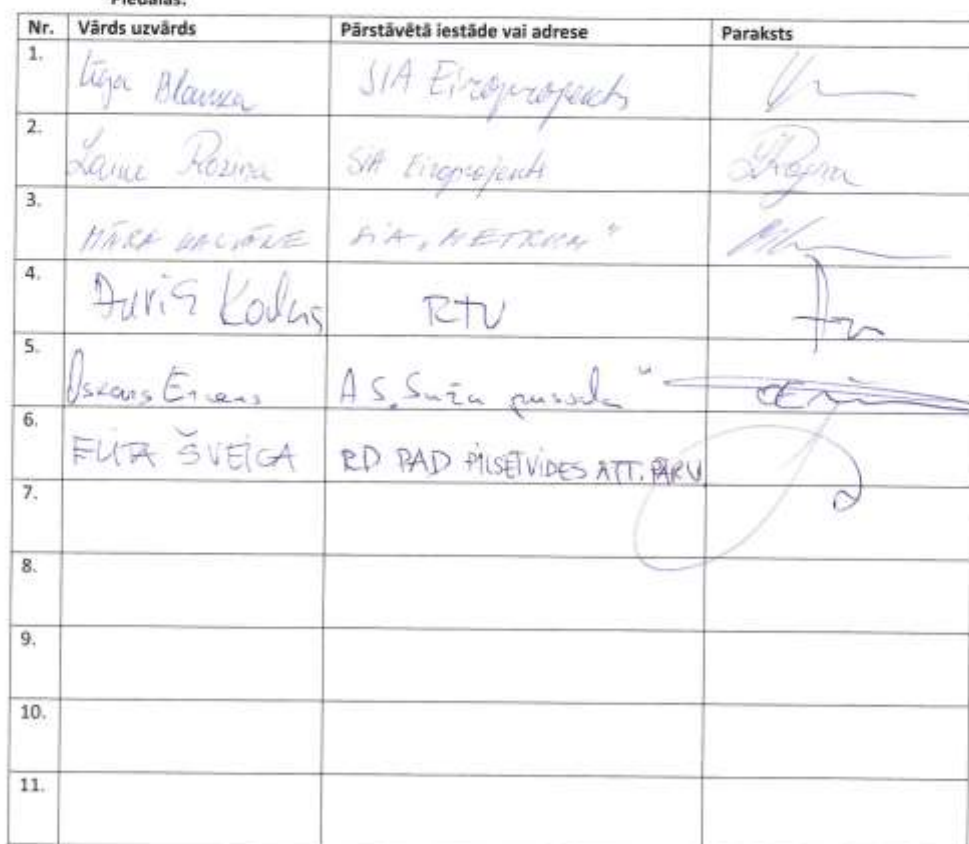 Piedalās:
Nr. Vārds uzvārds Pārstāvētā iestāde vai adrese Paraksts
1. Līga Blanka SIA Eiroprojekts
2. Laine Roziņa SIA Eiroprojekts
3. MĀRA KALVĀNE SIA „METRUM"
4. Kodors RTU
5. Oskars A S „Suža pussala"
6. ELITA ŠVEICA RD PAD PILSĒTVIDES ATT. PĀRV
7.
8.
9.
10.
11.